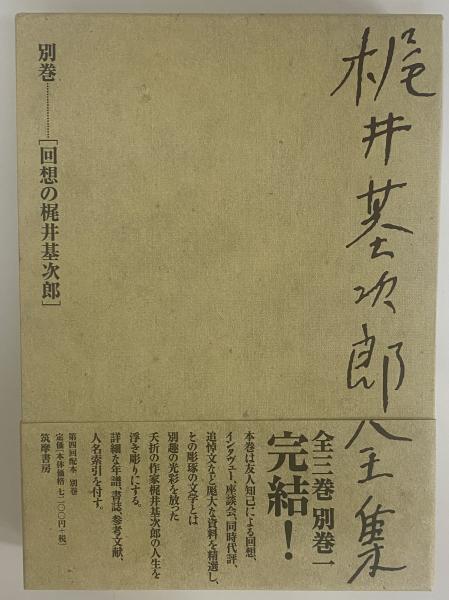 梶井基次郎全集
別巻………[回想の梶井基次郎]
全三巻 別巻一
完結!
本巻は友人知己による回想、
インタヴュー、座談会、同時代評、
追悼文など厖大な資料を精選し、
との彫琢の文学とは
別趣の光彩を放った
夭折の作家梶井基次郎の人生を
浮き彫りにする。
詳細な年譜、書誌、参考文献、
人名索引を付す。
第四回配本 別巻
定価(本体価格 七二〇〇円+税)
筑摩書房